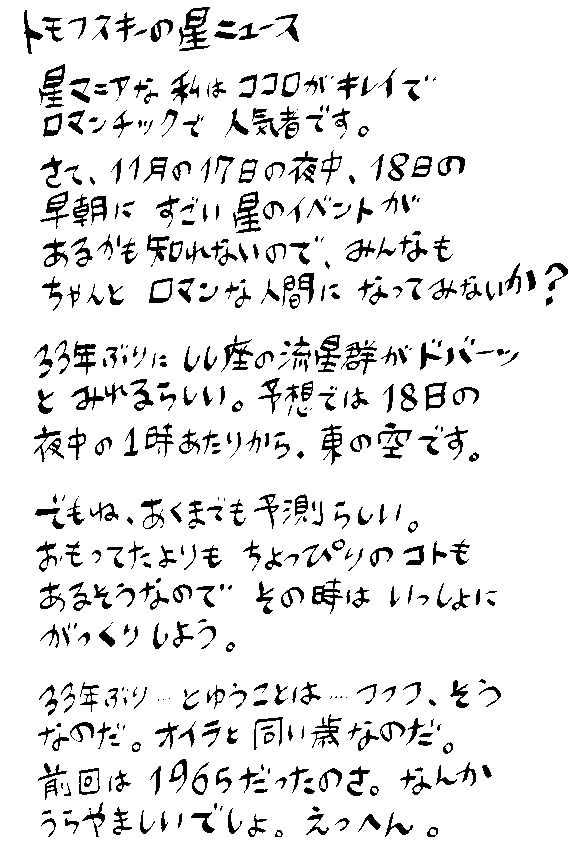 トモフスキーの星ニュース
星マニアな 私は ココロがキレイで
ロマンチックで 人気者です。
さて、11月の17日の夜中、18日の
早朝に すごい 星のイベントが
あるかも知れないので、みんなも
ちゃんと ロマンな人間に なってみないか?
33年ぶりに しし座の流星群がドバーッ
と みれるらしい。予想では 18日の
夜中の1時あたりから、東の空です。
でもね、あくまでも予測らしい。
おもってたよりも ちょっぴりのコトも
あるそうなので その時は いっしょに
がっくりしよう。
33年ぶり…とゆうことは…フフフ、そう
なのだ。オイラと同い歳なのだ。
前回は 1965だったのさ。なんか
うらやましいでしょ。えっへん。